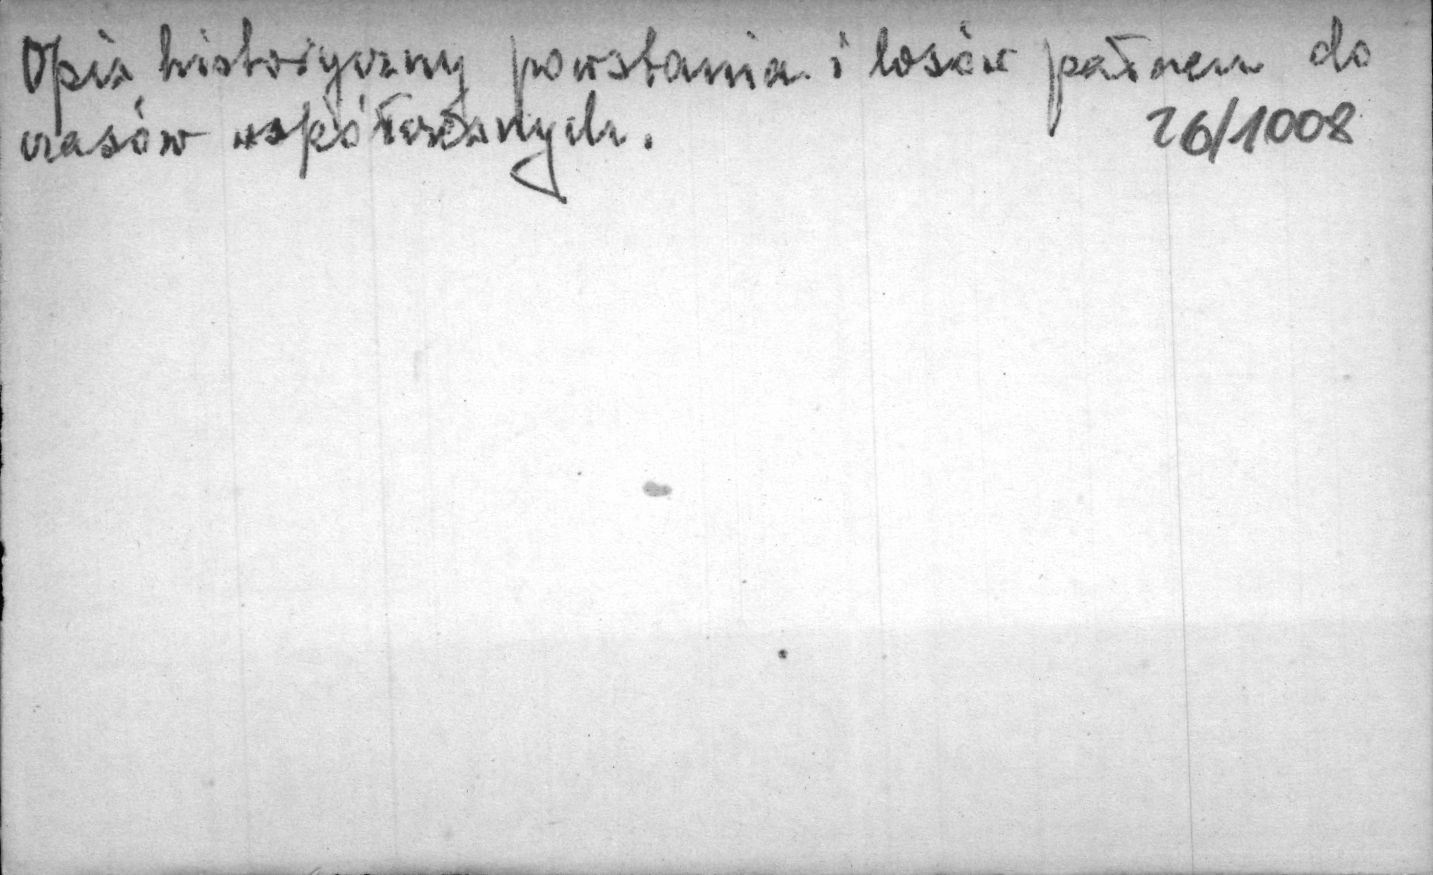 Opis historyczny powstania i losów pałacu do
czasów współczesnych. 26/1008